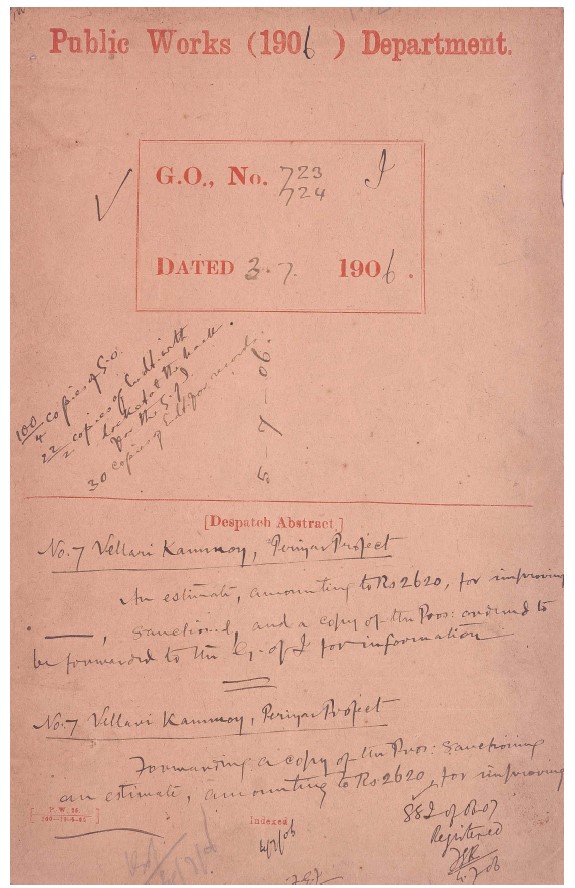 Public Works (1906) Department.
G.O., No. 723 I
724
DATED 3.7. 1906.
100 copies of G.O.
4
22 copies of Endt. with
2
docket at the back
for the G.I.
30 copies of Endt for record.
5-7-06.
[Despatch Abstract.]
No. 7 Vellari Kanmoy, Periyar Project
An estimate, amounting to Rs 2620, for improving
——, sanctioned, and a copy of the Pros: ordered to
be forwarded to the G. of I for information
No. 7 Vellari Kanmoy, Periyar Project
Forwarding a copy of the Pros: sanctioning
an estimate, amounting to Rs 2620, for improving
P. W. 36.
Indexed
Registered